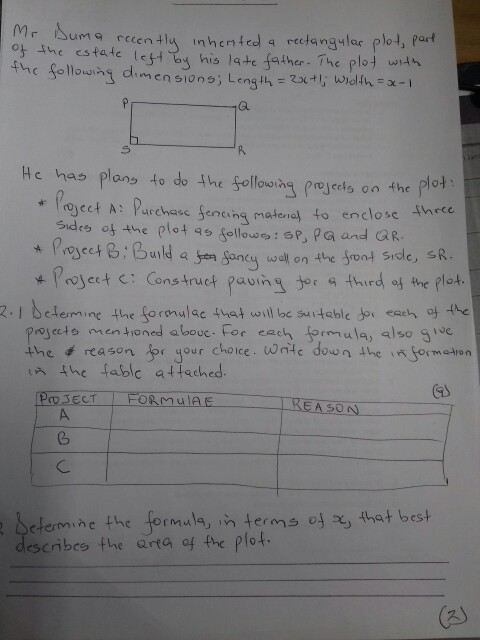 Mr Duma recently inherited a rectangular plot, part
of the estate left by his late father. The plot with
the following dimensions; Length = 2x+1; Width = x-1
P
Q
S
R
He has plans to do the following projects on the plot:
* Project A: Purchase fencing material to enclose three
sides of the plot as follows: SP, PQ and QR.
* Project B: Build a fancy wall on the front side, SR.
* Project C: Construct paving for a third of the plot.
2.1 Determine the formulae that will be suitable for each of the
projects mentioned above. For each formula, also give
the reason for your choice. Write down the information
in the table attached.
(9)
PROJECT FORMULAE REASON
A
B
C
Determine the formula, in terms of x, that best
describes the area of the plot.
(2)